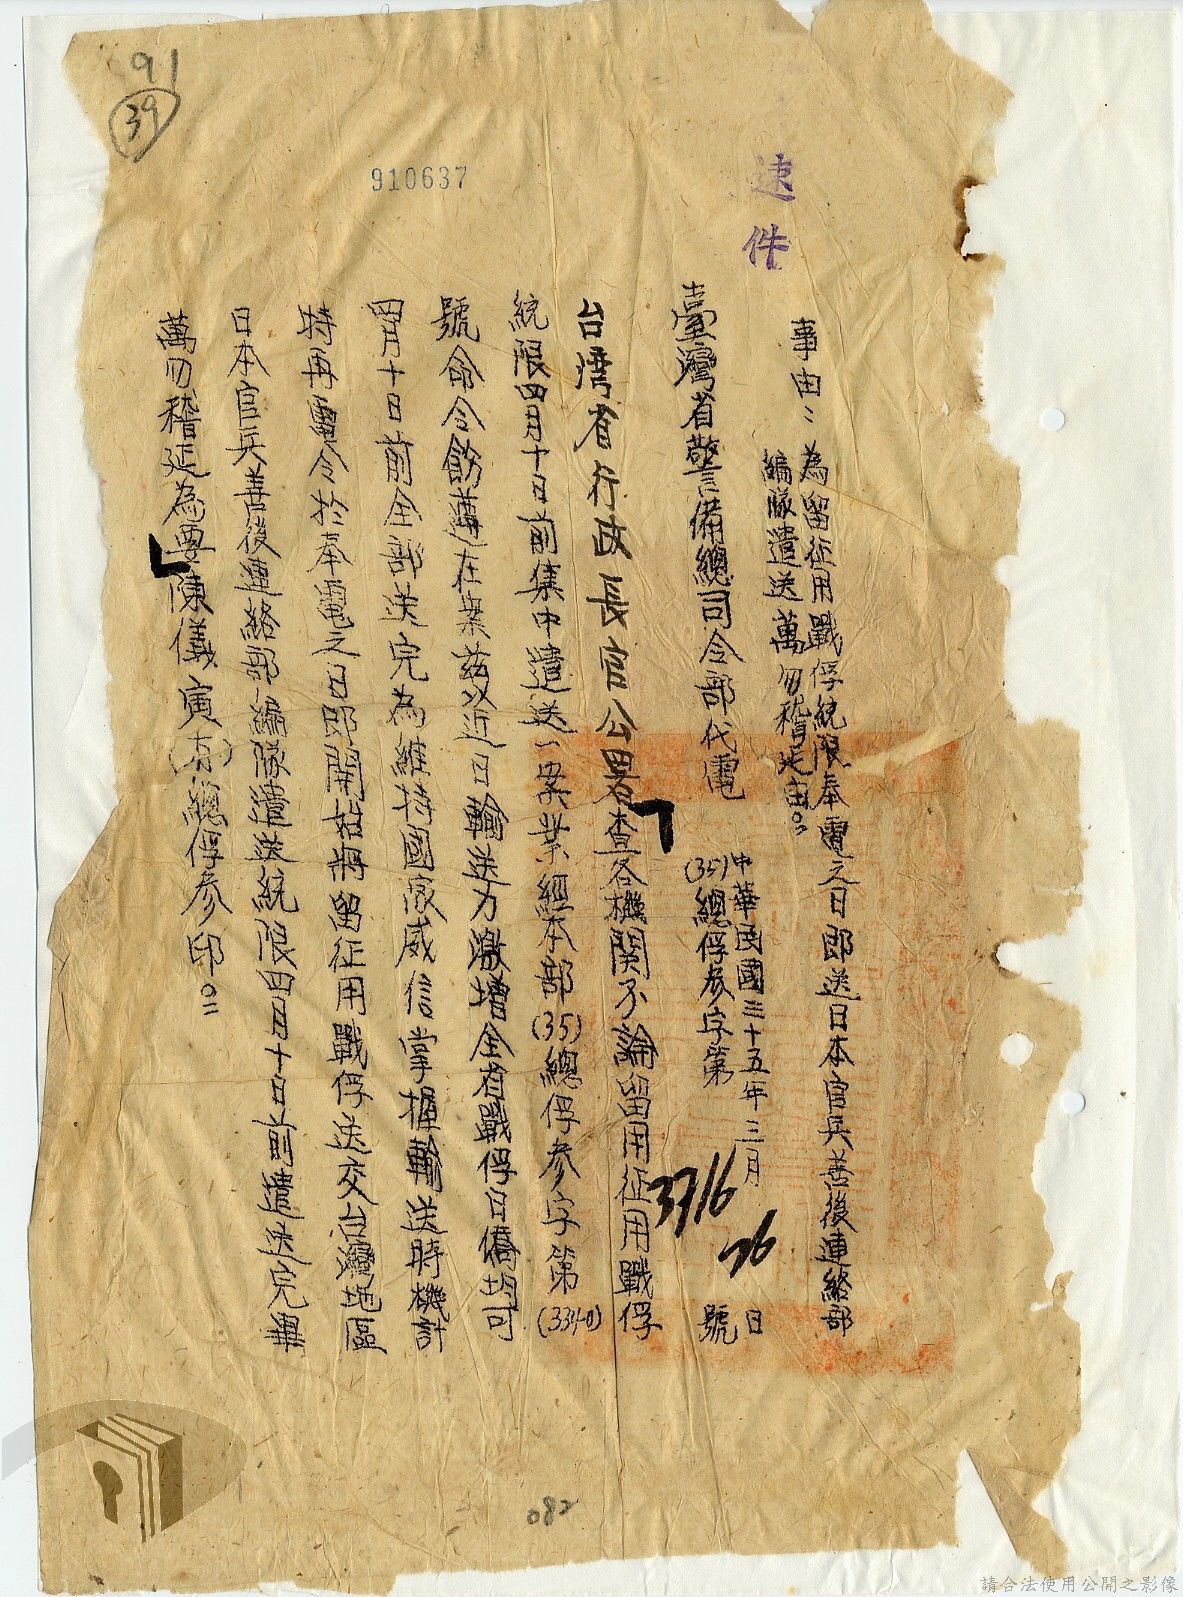 91
39
910637
速件
事由：為留征用戰俘統限奉電之日即送日本官兵善後連絡部
編隊遣送萬勿稽延由。
臺灣省警備總司令部代電
中華民國三十五年三月26日
(35)總俘參字第3716號
台湾省行政長官公署查各機関不論留用征用戰俘
統限四月十日前集中遣送一案業經本部(35)總俘參字第(3340)
號命令飭遵在案茲以近日輸送力激增全省戰俘日僑均可
四月十日前全部送完為維持國家威信掌握輸送時機計
特再電令於奉電之日即開始將留征用戰俘送交台灣地區
日本官兵善後連絡部編隊遣送統限四月十日前遣送完畢
萬勿稽延為要陳儀寅()總俘參印。
082
請合法使用公開之影像